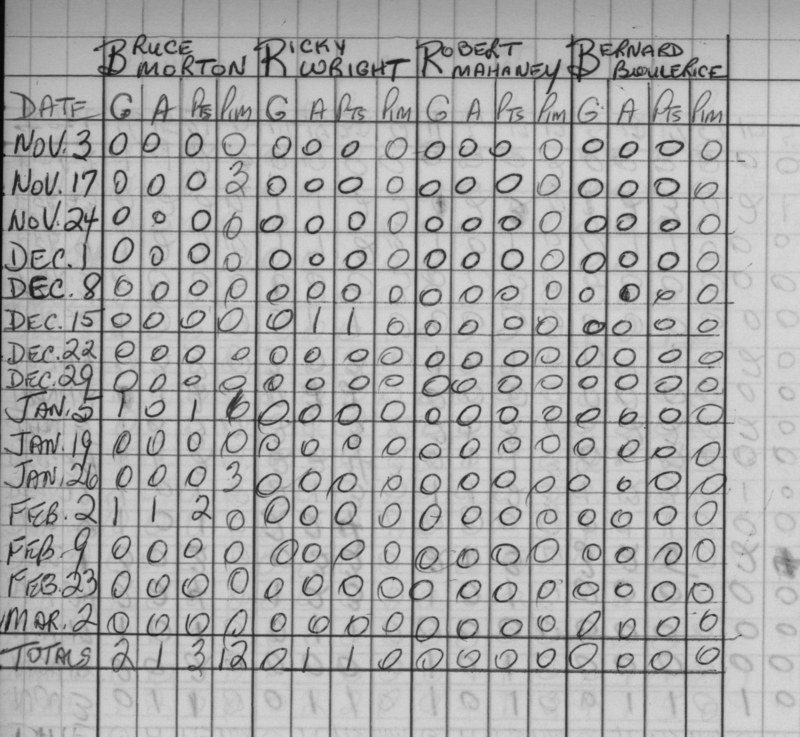 BRUCE MORTON RICKY WRIGHT ROBERT MAHANEY BERNARD BIOULERICE
DATE G A Pts Pim G A Pts Pim G A Pts Pim G A Pts Pim
NOV. 3 0 0 0 0 0 0 0 0 0 0 0 0 0 0 0 0
NOV. 17 0 0 0 3 0 0 0 0 0 0 0 0 0 0 0 0
NOV. 24 0 0 0 0 0 0 0 0 0 0 0 0 0 0 0 0
DEC. 1 0 0 0 0 0 0 0 0 0 0 0 0 0 0 0 0
DEC. 8 0 0 0 0 0 0 0 0 0 0 0 0 0 0 0 0
DEC. 15 0 0 0 0 0 1 1 0 0 0 0 0 0 0 0 0
DEC. 22 0 0 0 0 0 0 0 0 0 0 0 0 0 0 0 0
DEC. 29 0 0 0 0 0 0 0 0 0 0 0 0 0 0 0 0
JAN. 5 1 0 1 6 0 0 0 0 0 0 0 0 0 0 0 0
JAN. 19 0 0 0 0 0 0 0 0 0 0 0 0 0 0 0 0
JAN. 26 0 0 0 3 0 0 0 0 0 0 0 0 0 0 0 0
FEB. 2 1 1 2 0 0 0 0 0 0 0 0 0 0 0 0 0
FEB. 9 0 0 0 0 0 0 0 0 0 0 0 0 0 0 0 0
FEB. 23 0 0 0 0 0 0 0 0 0 0 0 0 0 0 0 0
MAR. 2 0 0 0 0 0 0 0 0 0 0 0 0 0 0 0 0
TOTALS 2 1 3 12 0 1 1 0 0 0 0 0 0 0 0 0